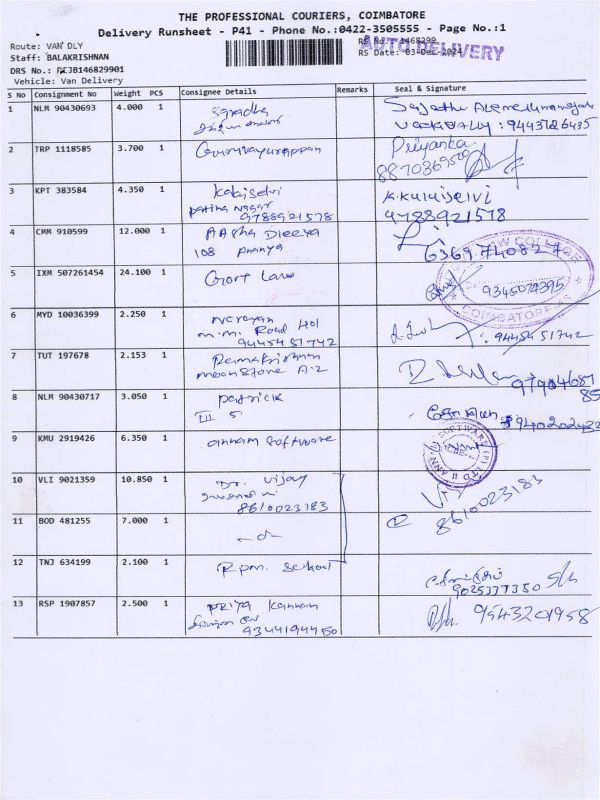 THE PROFESSIONAL COURIERS, COIMBATORE
Delivery Runsheet - P41 - Phone No.:0422-3505555 - Page No.:1
Route: VAN DLY
RS No.: 1468299
AUTO DELIVERY
Staff: BALAKRISHNAN
RS Date: 03-Dec-2024
DRS No.:
Vehicle: Van Delivery
S No Consignment No Weight PCS Consignee Details Remarks Seal & Signature
1 NLM 90430693 4.000 1
9443726435
2 TRP 1118585 3.700 1 Guruvayurappan Priyanka
3 KPT 383584 4.350 1 Kalaiselvi K. Kulaiselvi
9788921578 9788921578
4 CMM 910599 12.000 1
108 Ananya 6369740827
5 IXM 507261454 24.100 1 Gort Law 9345079395
COIMBATORE
6 MYD 10036399 2.250 1 Narayan
m.m. Road Hol
9445451742 9445451742
7 TUT 197678 2.153 1 Ramakrishnan
moonstone A:2
8 NLM 90430717 3.050 1 patrick
III 5
9 KMU 2919426 6.350 1 annam software
10 VLI 9021359 10.850 1 Dr. Vijay
8610023183 8610023183
11 BOD 481255 7.000 1 -do-
12 TNJ 634199 2.100 1 Rpm. School
9025377350
13 RSP 1907857 2.500 1 priya Kannan
9344194450 9543201958